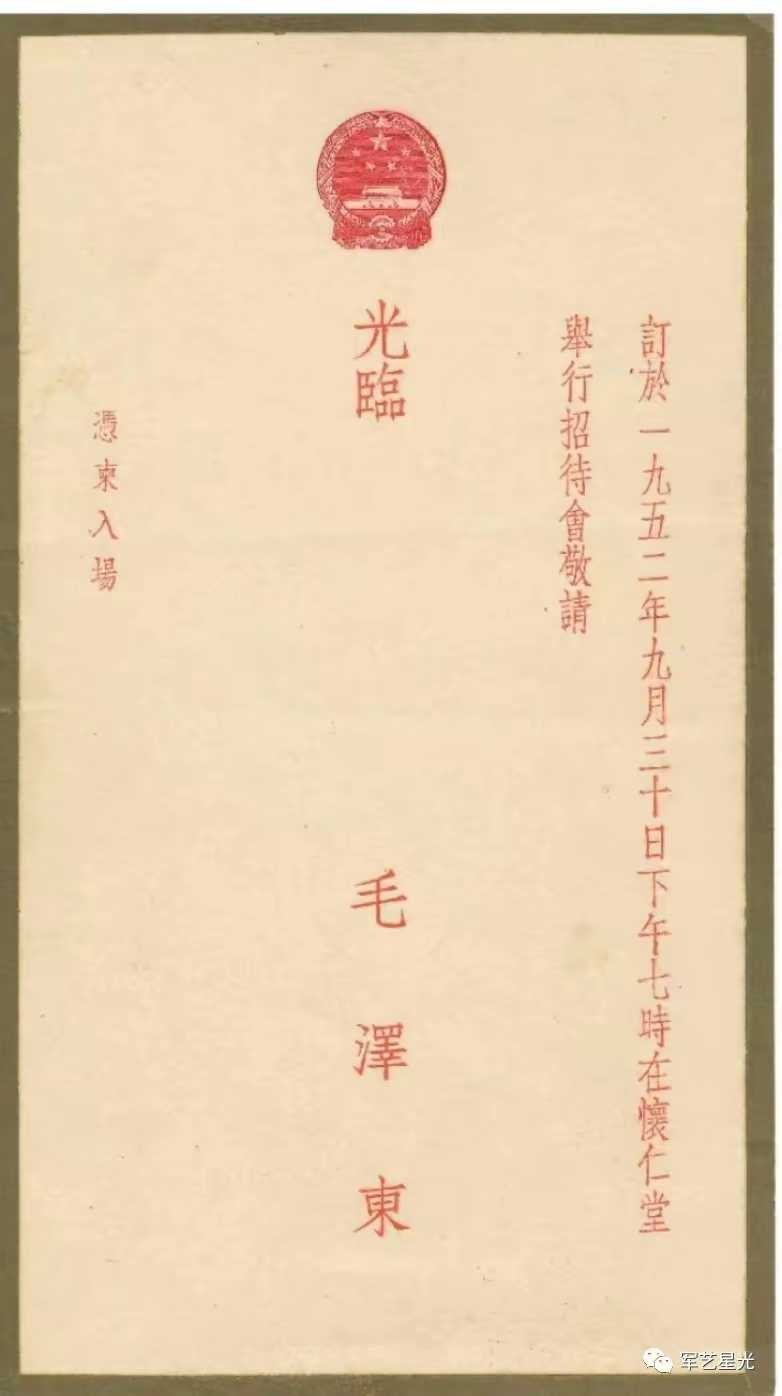 訂於一九五二年九月三十日下午七時在懷仁堂
舉行招待會敬請
光臨
毛澤東
憑柬入場
军艺星光